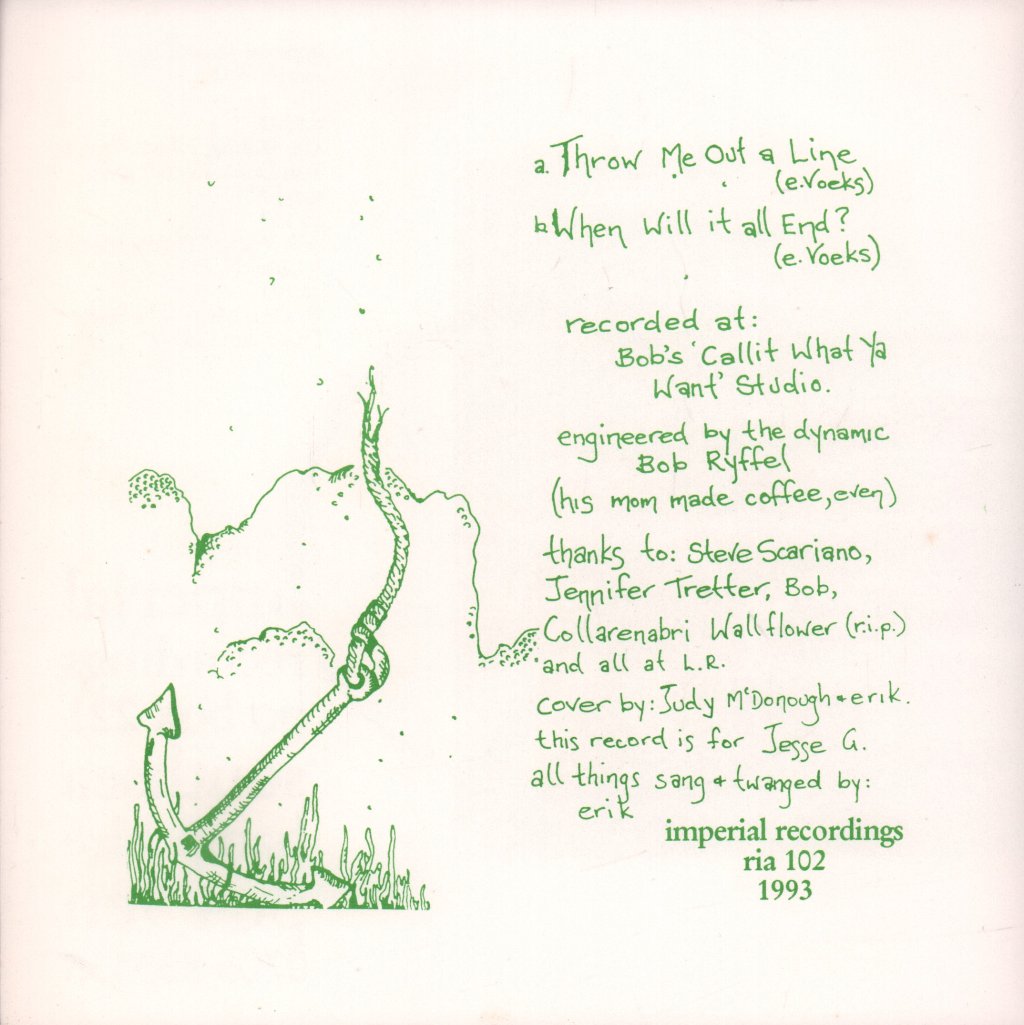 a. Throw Me Out a Line
(e. Voeks)
b. When Will it all End?
(e. Voeks)
recorded at:
Bob's 'Callit What Ya
Want' Studio.
engineered by the dynamic
Bob Ryffel
(his mom made coffee, even)
thanks to: Steve Scariano,
Jennifer Tretter, Bob,
Collarenabri Wallflower (r.i.p.)
and all at L.R.
cover by: Judy McDonough + erik.
this record is for Jesse G.
all things sang + twanged by:
erik
imperial recordings
ria 102
1993